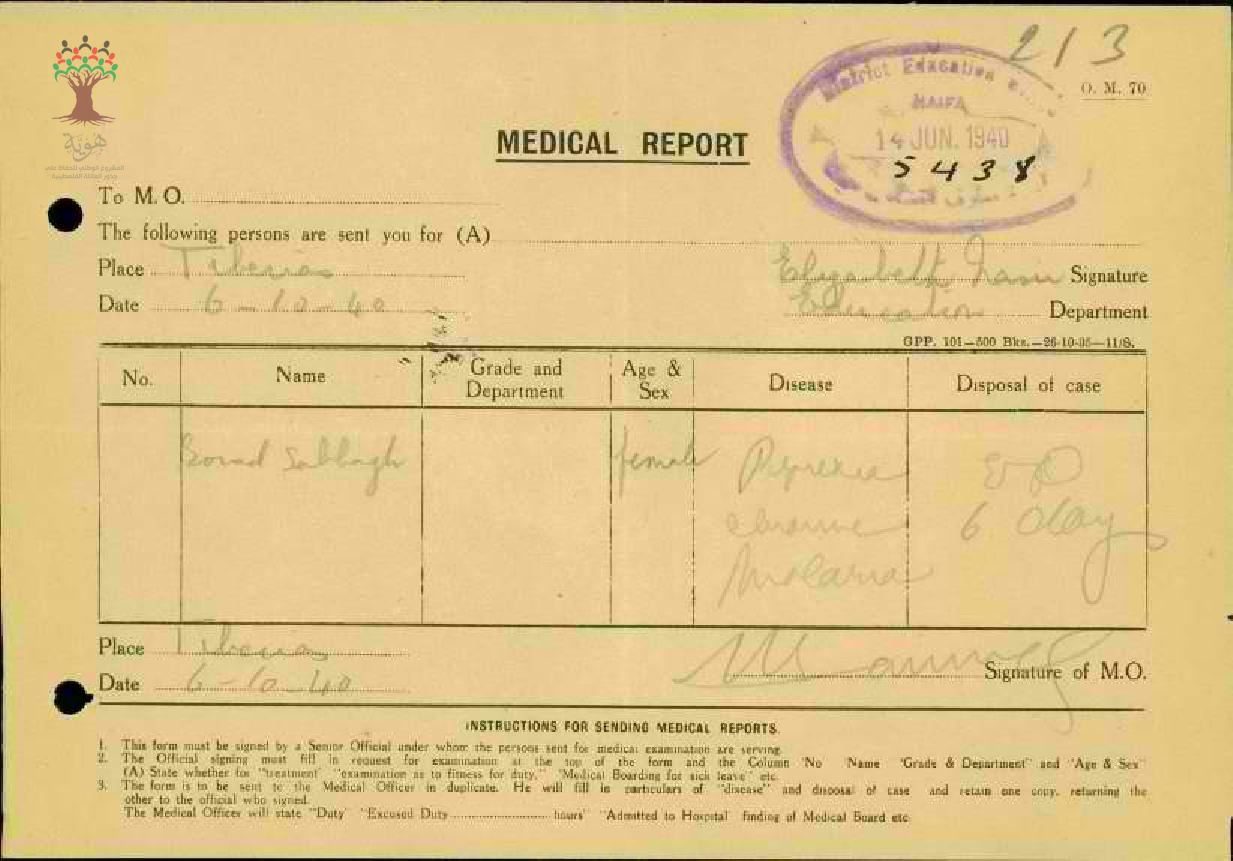 213
District Education
O. M. 70
HAIFA
14 JUN. 1940
5438
هوية
MEDICAL REPORT
To M. O.
The following persons are sent you for (A)
Place Tiberias
Elizabeth Nasir Signature
Date 6-10-40
Education Department
GPP. 101—500 Bks.—26-10-35—11/S.
No. Name Grade and Department Age & Sex Disease Disposal of case
Sabbagh female Pyrexia
6 day
Malaria
Place Tiberias
Date 6-10-40
Signature of M.O.
INSTRUCTIONS FOR SENDING MEDICAL REPORTS.
1. This form must be signed by a Senior Official under whom the persons sent for medical examination are serving.
2. The Official signing must fill in request for examination at the top of the form and the Column "No Name "Grade & Department" and "Age & Sex"
(A) State whether for "treatment" "examination as to fitness for duty," "Medical Boarding for sick leave" etc.
3. The form is to be sent to the Medical Officer in duplicate. He will fill in particulars of "disease" and disposal of case and retain one copy, returning the
other to the official who signed.
The Medical Officer will state "Duty" "Excused Duty hours" "Admitted to Hospital" finding of Medical Board etc.